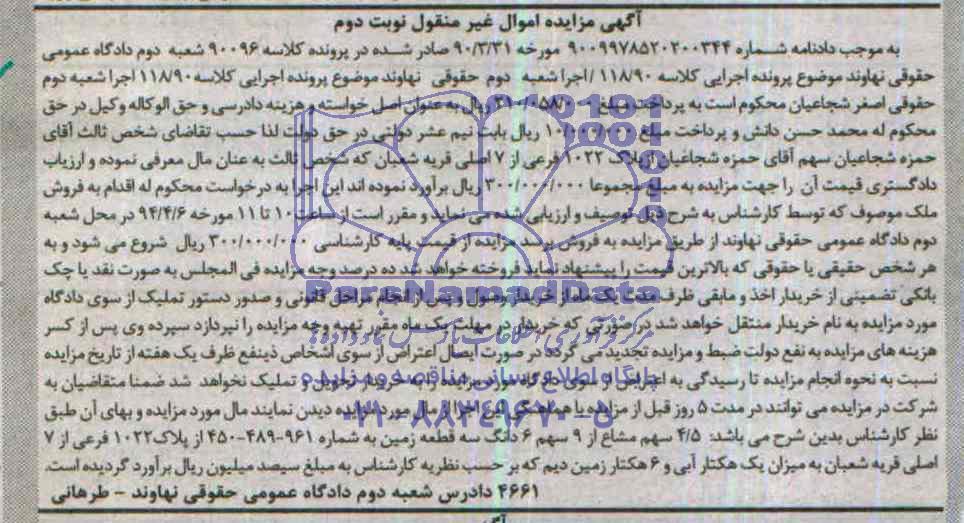 آگهی مزایده اموال غیر منقول نوبت دوم
به موجب دادنامه شماره ۹۰۰۹۹۷۸۵۲۰۲۰۰۳۴۴ مورخه ۹۰/۳/۳۱ صادر شده در پرونده کلاسه ۹۰۰۹۶ شعبه دوم دادگاه عمومی
حقوقی نهاوند موضوع پرونده اجرایی کلاسه ۱۱۸/۹۰ /اجرا شعبه دوم حقوقی نهاوند موضوع پرونده اجرایی کلاسه ۱۱۸/۹۰ اجرا شعبه دوم
حقوقی اصغر شجاعیان محکوم است به پرداخت مبلغ ریال به عنوان اصل خواسته و هزینه دادرسی و حق الوکاله وکیل در حق
محکوم له محمد حسن دانش و پرداخت مبلغ ۱۰/۰۰۰/۰۰۰ ریال بابت نیم عشر دولتی در حق دولت لذا حسب تقاضای شخص ثالث آقای
حمزه شجاعیان سهم آقای حمزه شجاعیان ازپلاک ۱۰۲۲ فرعی از ۷ اصلی قریه شعبان که شخص ثالث به عنان مال معرفی نموده و ارزیاب
دادگستری قیمت آن را جهت مزایده به مبلغ مجموعا ۳۰۰/۰۰۰/۰۰۰ ریال برآورد نموده اند این اجرا به درخواست محکوم له اقدام به فروش
ملک موصوف که توسط کارشناس به شرح ذیل توصیف و ارزیابی شده می نماید و مقرر است از ساعت ۱۰ تا ۱۱ مورخه ۹۴/۴/۶ در محل شعبه
دوم دادگاه عمومی حقوقی نهاوند از طریق مزایده به فروش برسد مزایده از قیمت پایه کارشناسی ۳۰۰/۰۰۰/۰۰۰ ریال شروع می شود و به
هر شخص حقیقی یا حقوقی که بالاترین قیمت را پیشنهاد نماید فروخته خواهد شد ده درصد وجه مزایده فی المجلس به صورت نقد یا چک
بانکی تضمینی از خریدار اخذ و مابقی ظرف مدت یک ماه از خریدار وصول و پس از انجام مراحل قانونی و صدور دستور تملیک از سوی دادگاه
مورد مزایده به نام خریدار منتقل خواهد شد در صورتی که خریدار در مهلت یک ماه مقرر تهیه وجه مزایده را نپردازد سپرده وی پس از کسر
هزینه های مزایده به نفع دولت ضبط و مزایده تجدید می گردد در صورت ایصال اعتراض از سوی اشخاص ذینفع ظرف یک هفته از تاریخ مزایده
نسبت به نحوه انجام مزایده تا رسیدگی به اعتراض از سوی دادگاه مورد مزایده به خریدار تحویل و تملیک نخواهد شد ضمنا متقاضیان به
شرکت در مزایده می توانند در مدت ۵ روز قبل از مزایده با هماهنگی این اجرا از مال مورد مزایده دیدن نمایند مال مورد مزایده و بهای آن طبق
نظر کارشناس بدین شرح می باشد: ۴/۵ سهم مشاع از ۹ سهم ۶ دانگ سه قطعه زمین به شماره ۹۶۱-۴۸۹-۴۵۰ از پلاک ۱۰۲۲ فرعی از ۷
اصلی قریه شعبان به میزان یک هکتار آبی و ۶ هکتار زمین دیم که بر حسب نظریه کارشناس به مبلغ سیصد میلیون ریال برآورد گردیده است.
۴۶۶۱ دادرس شعبه دوم دادگاه عمومی حقوقی نهاوند - طرهانی
ParsNamadData
پایگاه اطلاع رسانی مناقصه و مزایده
۰۲۱-۸۸۳۴۹۶۷۰-۵